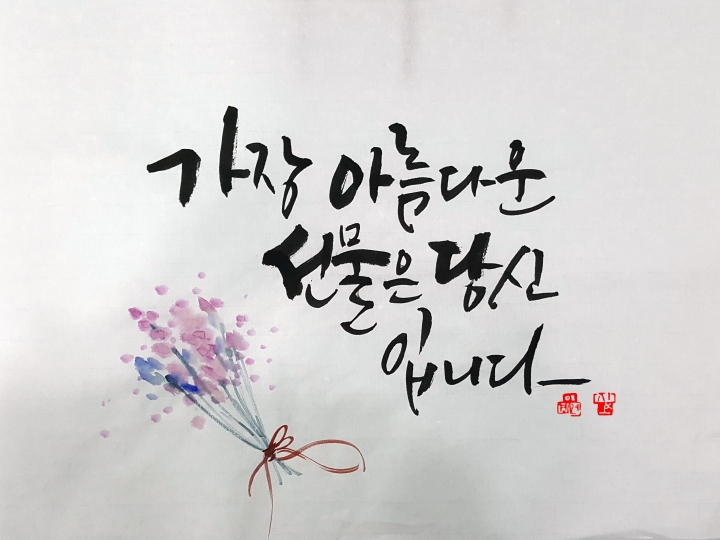 가장 아름다운
선물은 당신
입니다